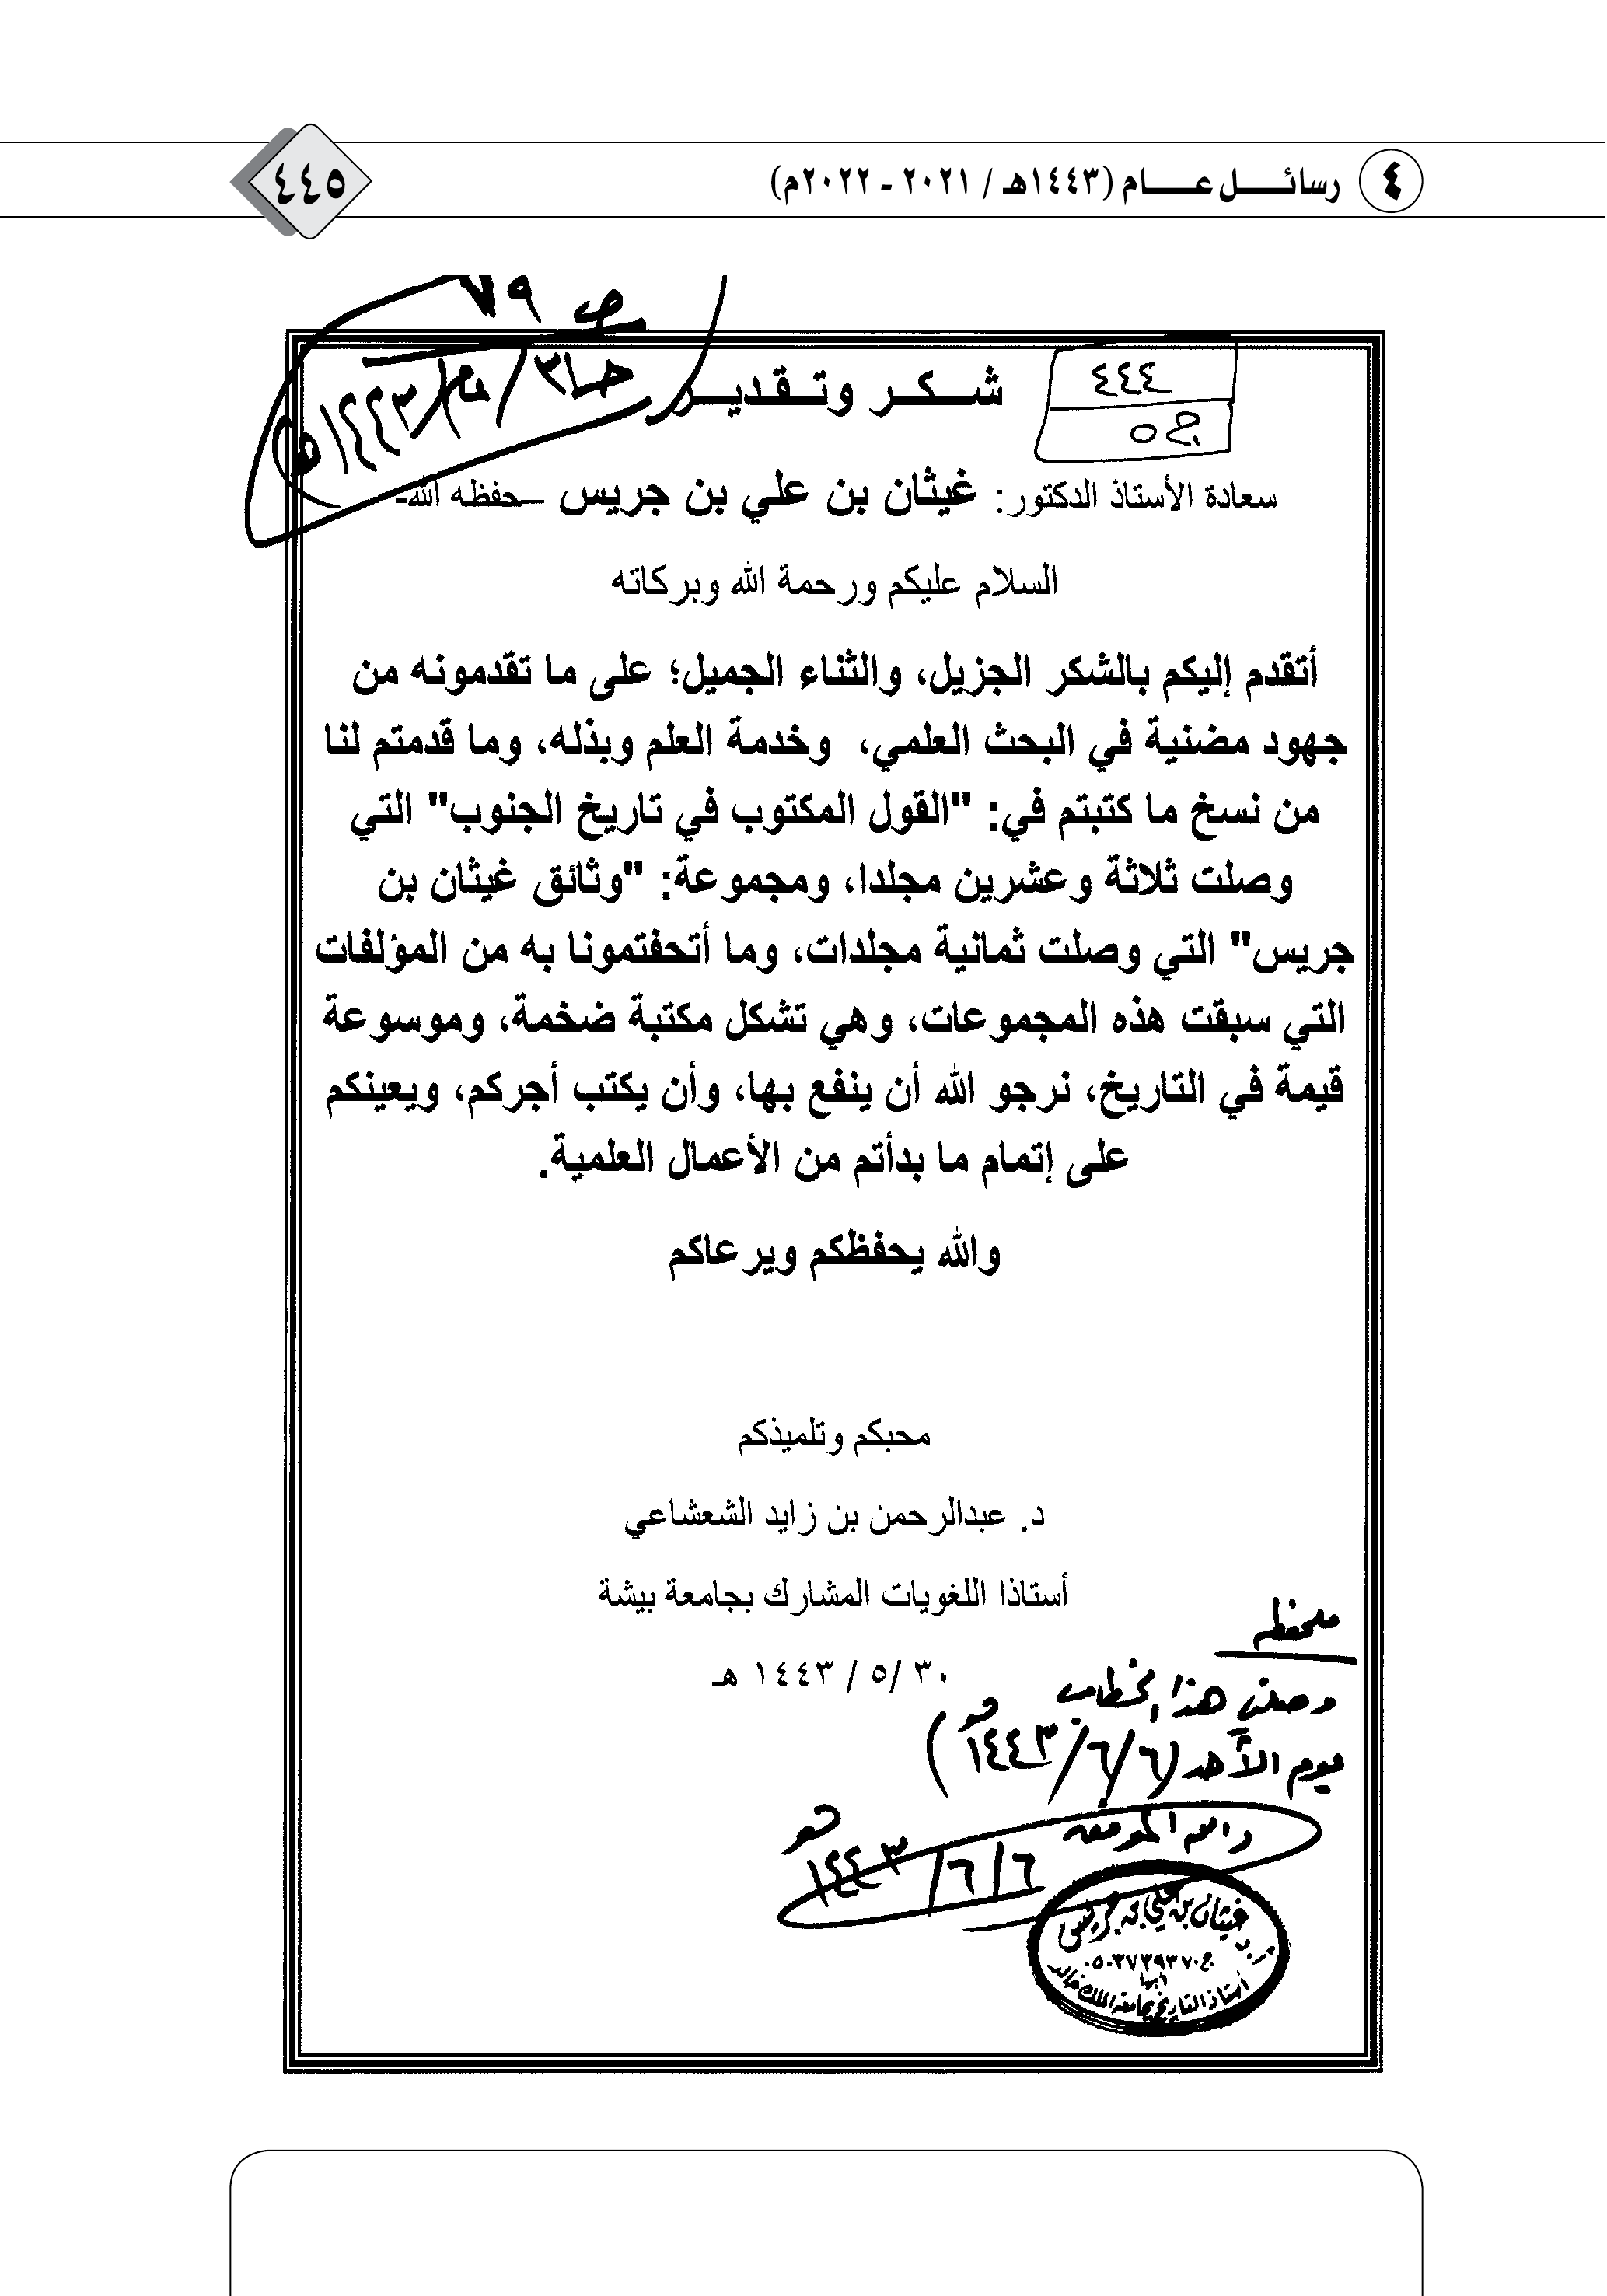 ٤ رسائل عام (١٤٤٣هـ / ٢٠٢١ - ٢٠٢٢م)
٤٤٥
ص ٧٩
/ عام / ١٤٤٣هـ
٤٤٤
ج ٥
شكر وتقدير
سعادة الأستاذ الدكتور: غيثان بن علي بن جريس –حفظه الله-
السلام عليكم ورحمة الله وبركاته
أتقدم إليكم بالشكر الجزيل، والثناء الجميل؛ على ما تقدمونه من
جهود مضنية في البحث العلمي، وخدمة العلم وبذله، وما قدمتم لنا
من نسخ ما كتبتم في: "القول المكتوب في تاريخ الجنوب" التي
وصلت ثلاثة وعشرين مجلدا، ومجموعة: "وثائق غيثان بن
جريس" التي وصلت ثمانية مجلدات، وما أتحفتمونا به من المؤلفات
التي سبقت هذه المجموعات، وهي تشكل مكتبة ضخمة، وموسوعة
قيمة في التاريخ، نرجو الله أن ينفع بها، وأن يكتب أجركم، ويعينكم
على إتمام ما بدأتم من الأعمال العلمية.
والله يحفظكم ويرعاكم
محبكم وتلميذكم
د. عبدالرحمن بن زايد الشعشاعي
أستاذا اللغويات المشارك بجامعة بيشة
٣٠ /٥ / ١٤٤٣ هـ
ملحظه
وصلني هذا الخطاب
يوم الأحد (٦/٦/١٤٤٣هـ)
والله الموفق
٦/٦/١٤٤٣هـ
أ.د غيثان بن علي بن جريس
ج٠٥٠٣٧٣٩٣٧٠
أبها
أستاذ التاريخ بجامعة الملك خالد